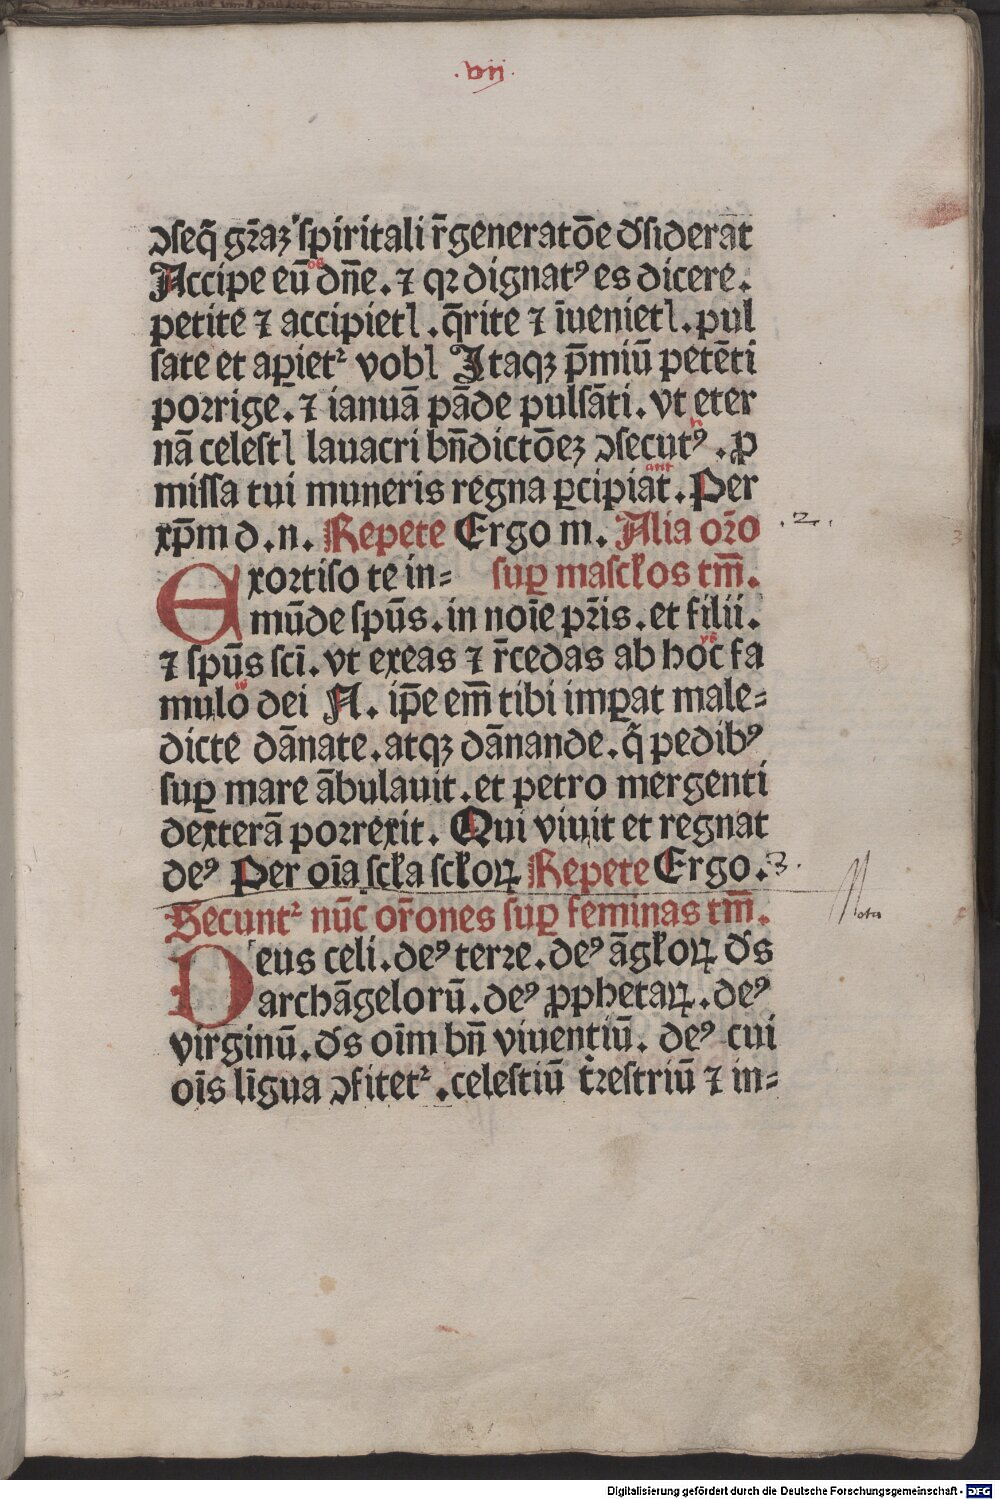 .vii.
ↄseq̄ gr̄aꝫ spiritali r̄generatōe d's̄iderāt
Accipe eū dn̄e. ⁊ qꝛ dignatꝰ es dicere.
petite ⁊ accipietꝭ. q̄rite ⁊ īuenietꝭ. pul
sate et aꝑietᷣ vobꝭ Itaqꝫ p̄miū petēti
porrige. ⁊ ianuā pāde pulsāti. vt eter
nā celestꝭ lauacri bn̄dictōeꝫ ↄsecutꝰ. ꝓ
missa tui muneris regna ꝑcipiat. Per
xp̄m d. n. Repete Ergo m. Alia or̄o
.2.
super masck̄os tm̄.
Exortiso te in=
mūde spūs. in noīe pr̄is. et filii.
⁊ spūs scī. vt exeas ⁊ r̄cedas ab hoc fa
mulo dei N. ip̄e em̄ tibi imꝑat male=
dicte dānate. atqꝫ dānande. q̄ pedibꝰ
suꝑ mare ābulauit. et petro mergenti
dexterā porrexit. Qui viuit et regnat
deꝰ Per oīa scƚa scƚoꝝ Repete Ergo.
3.
Secuntᷣ nūc or̄ones suꝑ feminas tm̄.
Nota
Deus celi. deꝰ terre. deꝰ āgƚoꝝ d's
archāgelorū. deꝰ ꝓphetaꝝ. deꝰ
virginū. d's oīm bn̄ viuentiū. deꝰ cui
oīs līgua ↄfitetᷣ. celestiū t̄restriū ⁊ in=
Digitalisierung gefördert durch die Deutsche Forschungsgemeinschaft - DFG